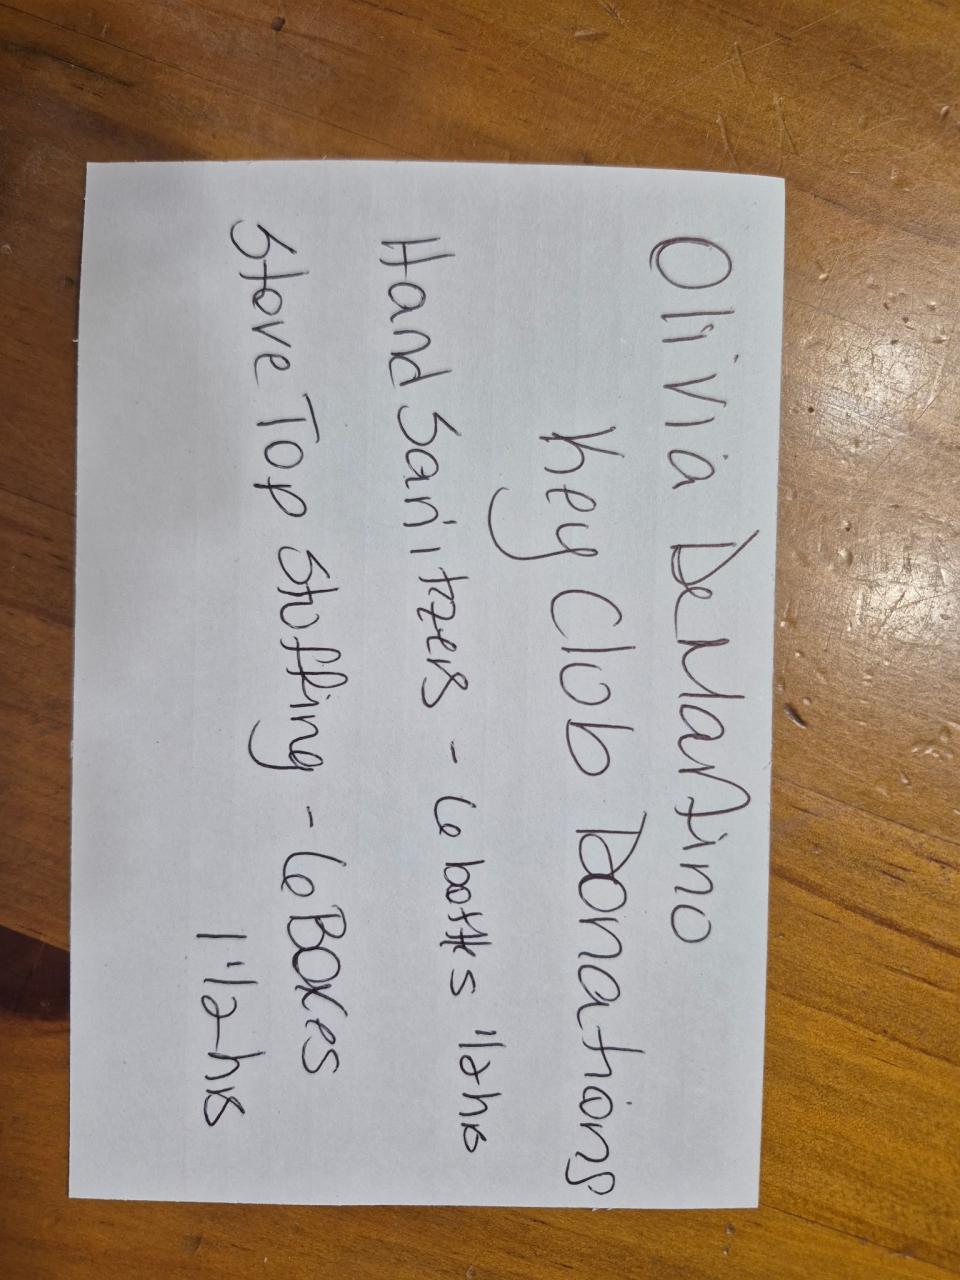 Olivia DeMartino
Key Club Donations
Hand Sanitzers - 6 bottles 1/2 hrs
Stove Top Stuffing - 6 Boxes
1 1/2 hrs